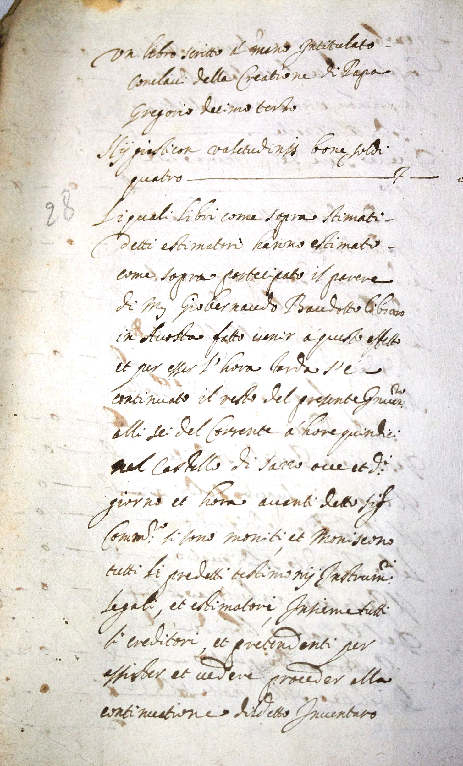 Un libro scritto à mano Intitulato
Conclavi della Creatione di Papa
Gregorio decimo terzo
valetudinis bone soldi
quatro
28
Li quali libri come sopra stimati
detti estimatori hanno estimato
come sopra partecipato il parere
di M. Giobernardo
in Avosta fatto venir a questo effetto
et per esser l'hora tarda s'e
continuato il resto del presente Inven.ro
alli sei del Corrente a hore quindici
nel Castello di ove et di
giorno et hora avanti detto Sig.
Comm.o si sono moniti, et Moniscono
tutti li predetti testimonij
legali, et estimatori, Insieme tutti
li creditori, et pretendenti per
assister et vedere proceder alla
continuatione del detto Inventaro